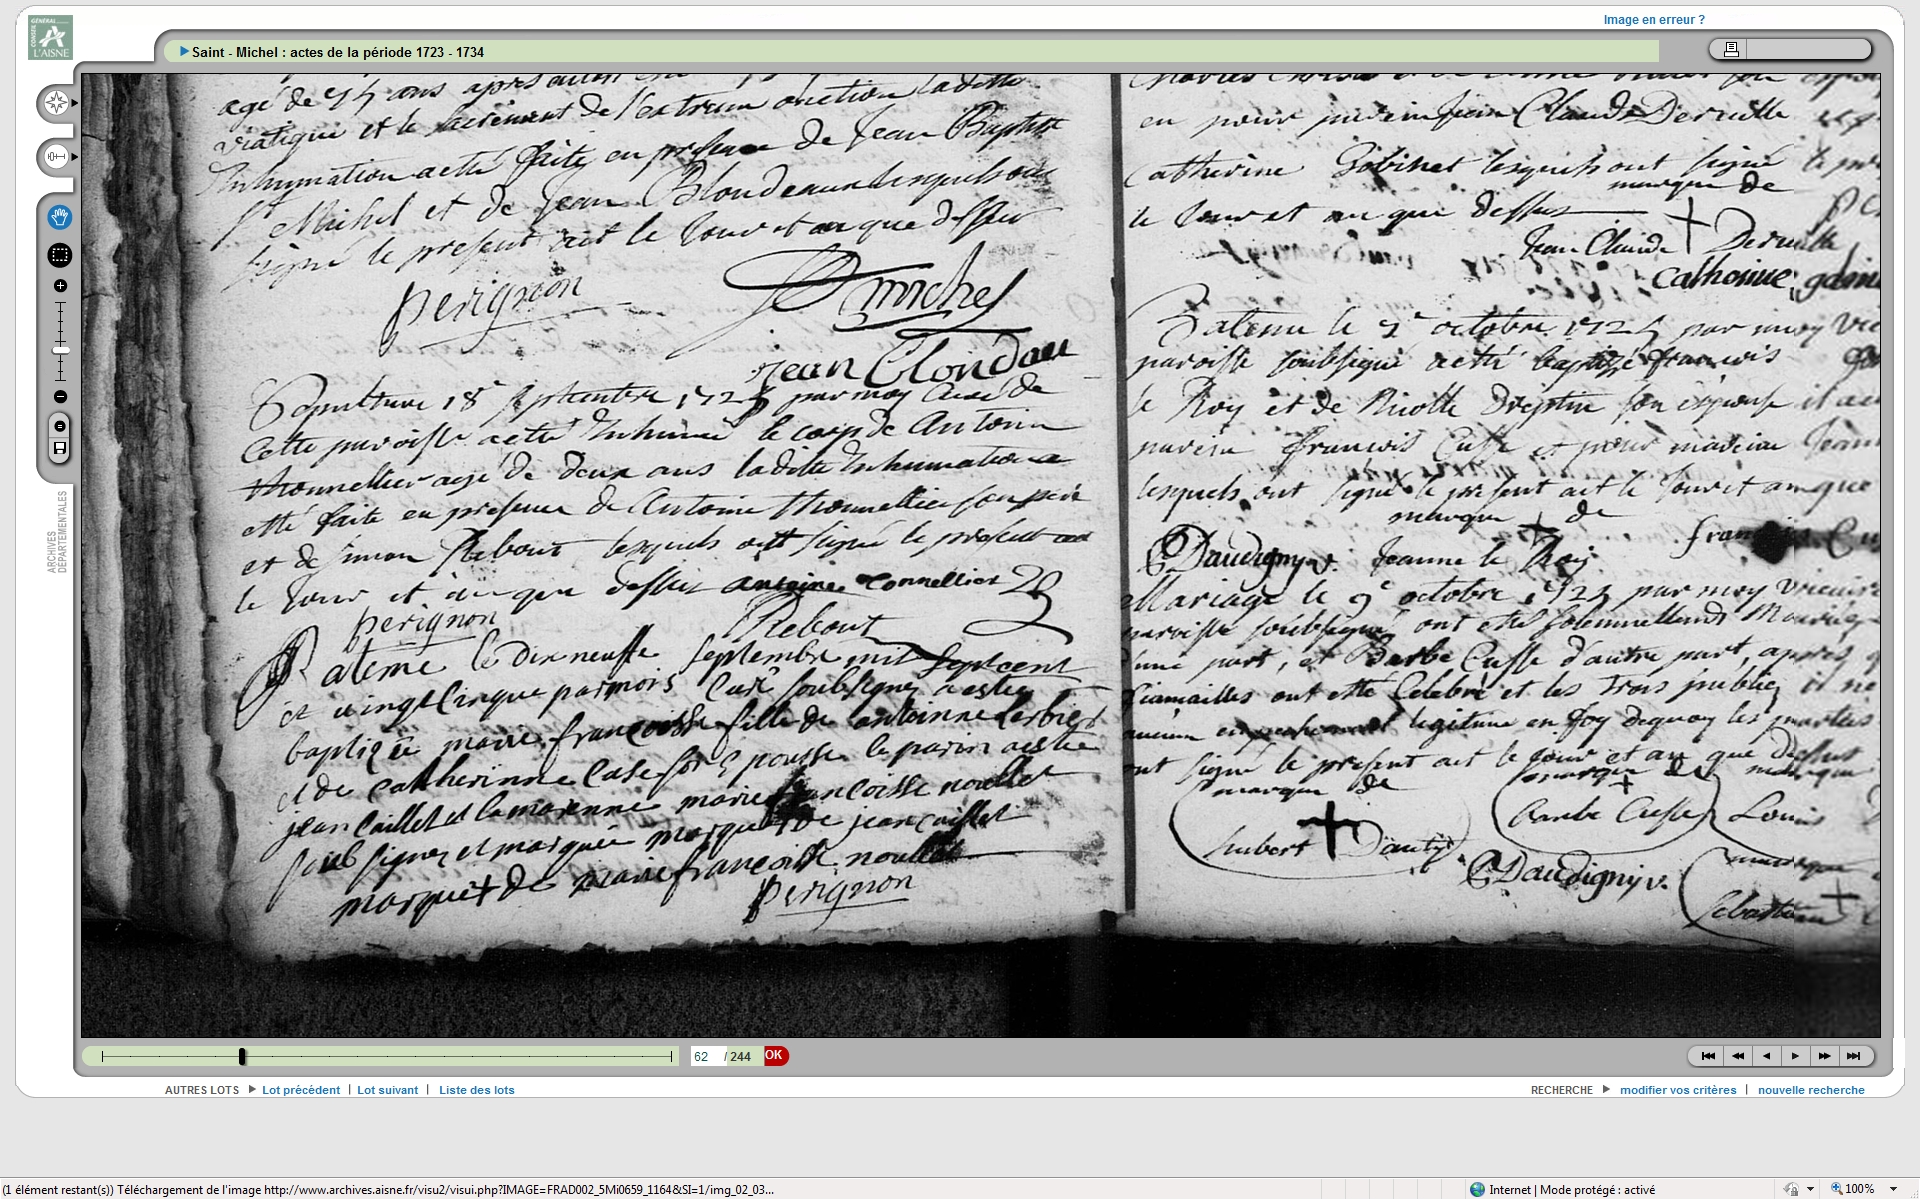 Image en erreur ?
GENERAL
CONSEIL
L'AISNE
Saint - Michel : actes de la période 1723 - 1734
ARCHIVES
DEPARTEMENTALES
agé de ans apres
viatique et le sacrement de l'extreme onction laditte
Inhumation a etté faite en presence de Jean Baptiste
St Michel et de Jean Blondeau lesquels ont
signé le present act le jour et an que dessus
perignon
michel
jean blondau
Sepulture 18e septembre 1725 par moy Curé de
Cette paroisse a etté Inhumé le corp de Antoine
thonnellier agé de deux ans laditte Inhumation a
etté faite en presence de Antoine thonnellier son pere
et de simon Rebout lesquels ont signé le present act
le jour et an que dessus antoine tonnellier
perignon
Rebout
Bateme le dix neuffe septembre mil sept cent
et vingt cinque par mois Curé soubsignez a estez
baptizée marie françoisse fille de antoinne
et de catherinne Case son Epousse le parin a esté
jean Caillet et la marenne marie françoisse noullet
soub signez et marquée marque de jean caillet
marque + de marie françoisse noullet
perignon
en pour parein Jean Claude Deruelle
Catherine Gobinet lesquels ont signé
marque de
le jour et an que dessus
Jean Claude + Deruelle
Catherine
Bateme le octobre 1725 par moy
paroisse soubsigné a etté baptizé francois
le Roy et de Nicolle son epouse
parein francois Cuffe et pour mareine Jeanne
lesquels ont signé le present act le jour et an que
marque + de
Daudigny v. Jeanne le Roy
Mariage le 9e octobre 1725 par moy vicaire
paroisse soubsigné ont etté solemnellement
d'une part, et Barbe Cuffe d'autre part, apres
fiancailles ont etté Celebré et les trois
aucun empechement legitime en foy de quoy les parties
ont signé le present act le jour et an que dessus
marque de
marque de
marque
hubert + Dauty
Barbe Cuffe
Louis
Daudigny v.
marque
Sebastien
62 / 244 OK
AUTRES LOTS Lot précédent | Lot suivant | Liste des lots
RECHERCHE modifier vos critères | nouvelle recherche
(1 élément restant(s)) Téléchargement de l'image http://www.archives.aisne.fr/visu2/visui.php?IMAGE=FRAD002_5Mi0659_1164&SI=1/img_02_03...
Internet | Mode protégé : activé
100%